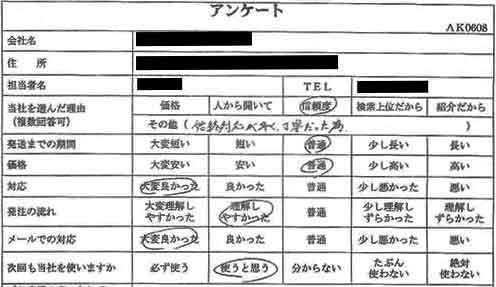 アンケート
AK0608
会社名
住 所
担当者名 TEL
当社を選んだ理由 (複数回答可) 価格 人から聞いて 信頼度 検索上位だから 紹介だから
その他 ( 丁寧だった為 )
発送までの期間 大変短い 短い 普通 少し長い 長い
価格 大変安い 安い 普通 少し高い 高い
対応 大変良かった 良かった 普通 少し悪かった 悪い
発注の流れ 大変理解しやすかった 理解しやすかった 普通 少し理解しずらかった 理解しずらかった
メールでの対応 大変良かった 良かった 普通 少し悪かった 悪い
次回も当社を使いますか 必ず使う 使うと思う 分からない たぶん使わない 絶対使わない